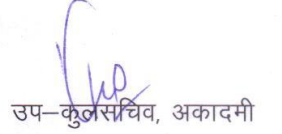 उप–कुलसचिव, अकादमी